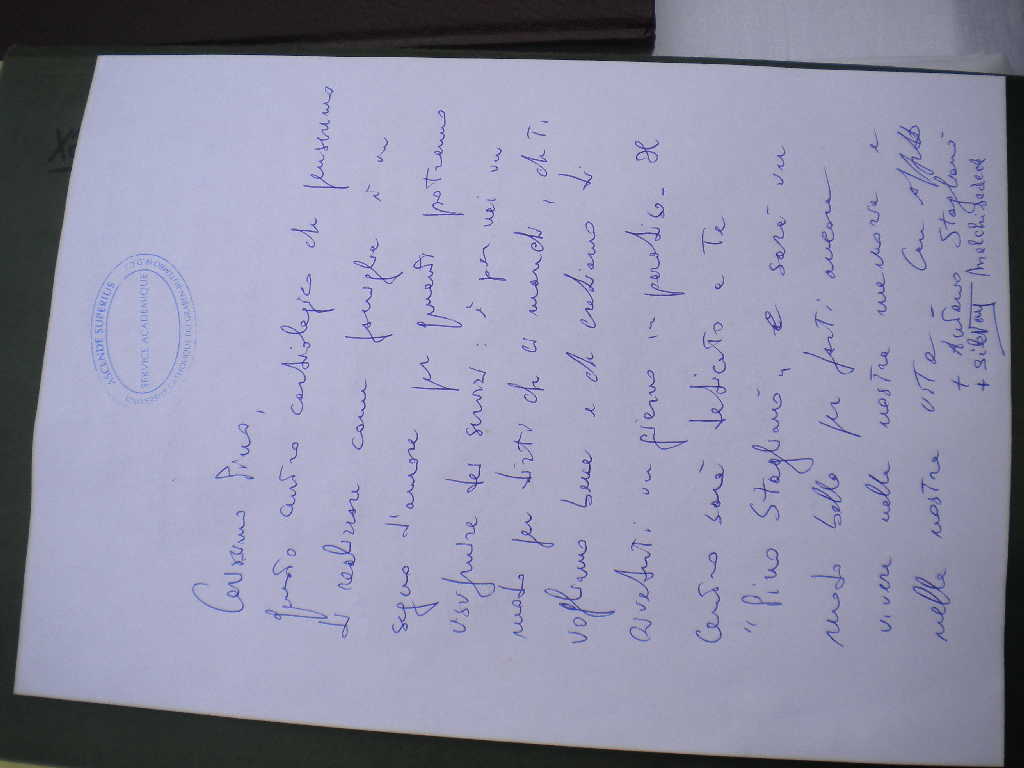 ASCENDE SUPERIUS
SERVICE ACADEMIQUE
Carissimo Pino,
questo centro cardiologico che pensiamo
di realizzare come famiglia è un
segno d'amore per quanti potranno
usufruire dei servizi: è per noi un
modo per dirti che ci manchi, che ti
vogliamo bene e che crediamo di
rivederti un giorno in paradiso. Il
Centro sarà dedicato a Te
"Pino Staglianò" e sarà un
modo bello per farti ancora
vivere nelle nostre memorie e
nella nostra vita. Con affetto
+ Antonio Staglianò
+ Sibitay Melchisedech